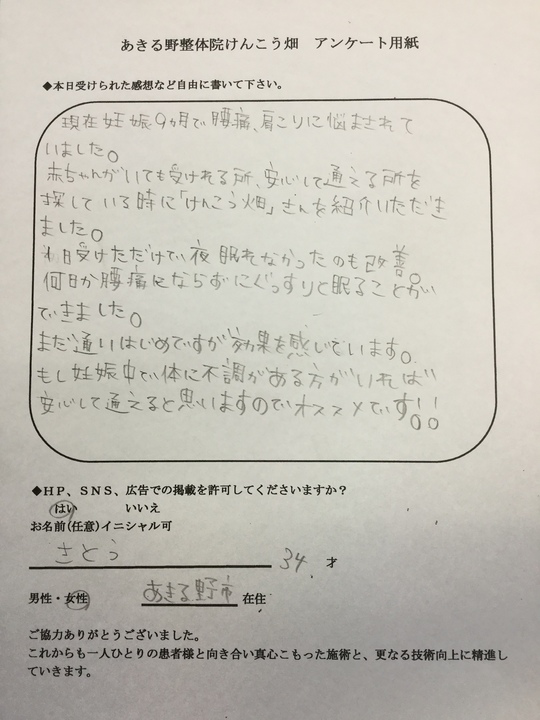 あきる野整体院けんこう畑　アンケート用紙
◆本日受けられた感想など自由に書いて下さい。
現在妊娠9ヵ月で腰痛、肩こりに悩まされて
いました。
赤ちゃんがいても受けれる所、安心して通える所を
探している時に「けんこう畑」さんを紹介いただき
ました。
1日受けただけで夜眠れなかったのも改善。
何日か腰痛にならずにぐっすりと眠ることが
できました。
まだ通いはじめですが効果を感じています。
もし妊娠中で体に不調がある方がいれば
安心して通えると思いますのでオススメです!!
◆HP、SNS、広告での掲載を許可してくださいますか？
はい　　いいえ
お名前(任意)イニシャル可
さとう　34 才
男性・女性　あきる野市 在住
ご協力ありがとうございました。
これからも一人ひとりの患者様と向き合い真心こもった施術と、更なる技術向上に精進し
ていきます。